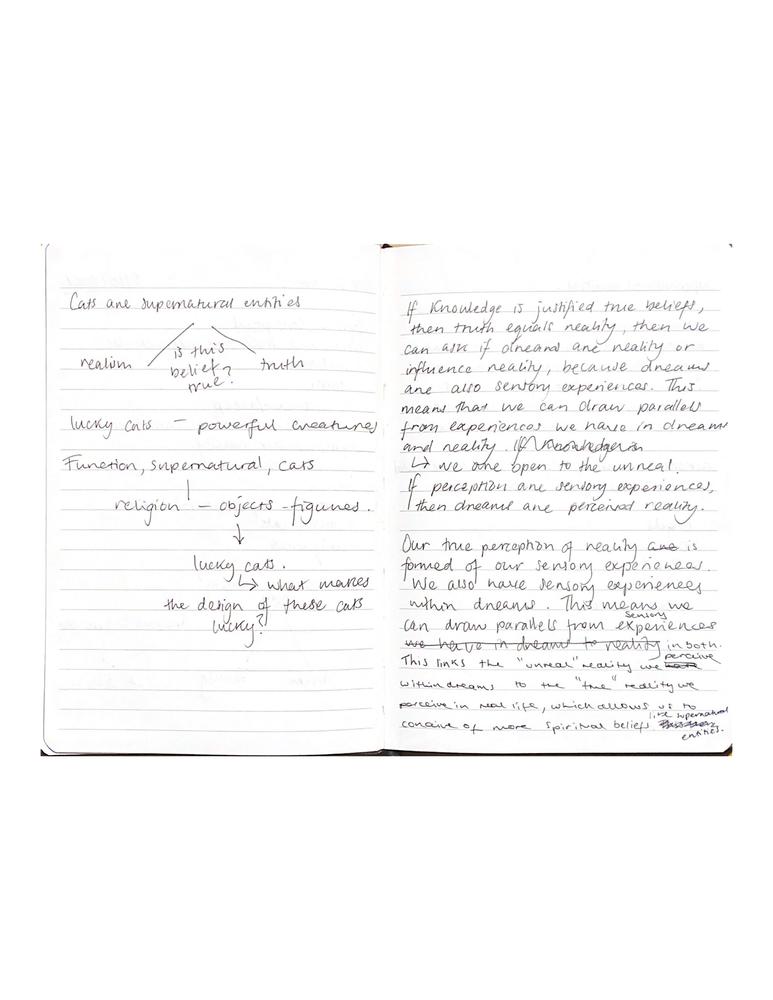 Cats are supernatural entities
realism
is this
belief?
true?
truth
lucky cats — powerful creatures
Function, supernatural, cats
religion — objects - figures.
lucky cats.
↳ what makes
the design of these cats
lucky?
If Knowledge is justified true beliefs,
then truth equals reality, then we
can ask if dreams are reality or
influence reality, because dreams
are also sensory experiences. This
means that we can draw parallels
from experiences we have in dreams
and reality. If Knowledge is
↳ we are open to the unreal.
If perception are sensory experiences,
then dreams are perceived reality.
Our true perception of reality are is
formed of our sensory experiences.
We also have sensory experiences
within dreams. This means we
can draw parallels from sensory experiences
we have in dreams to reality in both.
This links the "unreal" reality we have perceive
within dreams to the "true" reality we
perceive in real life, which allows us to
conceive of more spiritual beliefs like supernatural
entities.